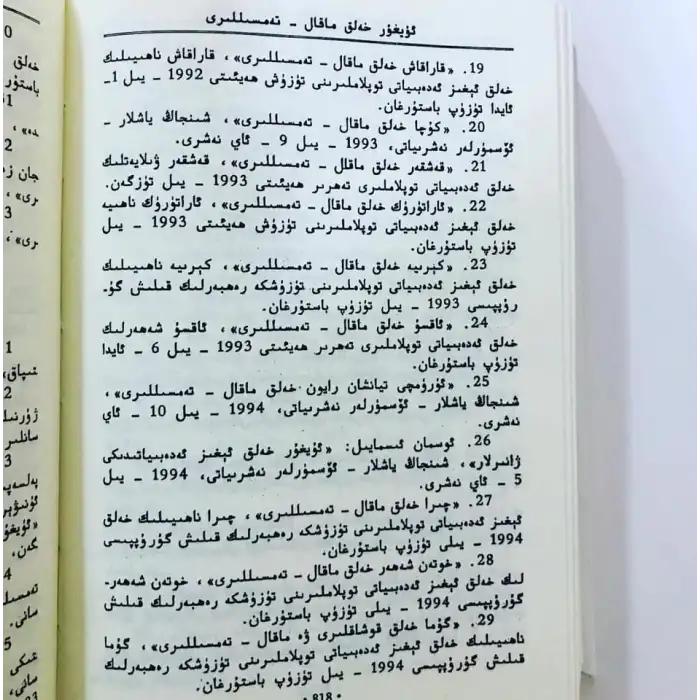 ئۇيغۇر خەلق ماقال – تەمسىللىرى
19. «قاراقاش خەلق ماقال – تەمسىللىرى»، قاراقاش ناھىيىلىك
خەلق ئېغىز ئەدەبىياتى توپلاملىرىنى تۈزۈش ھەيئىتى 1992 – يىل 1–
ئايدا تۈزۈپ باستۇرغان.
20. «كۇچا خەلق ماقال – تەمسىللىرى»، شىنجاڭ ياشلار –
ئۆسمۈرلەر نەشرىياتى، 1993 – يىل 9 – ئاي نەشرى.
21. «قەشقەر خەلق ماقال – تەمسىللىرى»، قەشقەر ۋىلايەتلىك
خەلق ئەدەبىياتى توپلاملىرى تەھرىر ھەيئىتى 1993 – يىل تۈزگەن.
22. «ئاراتۈرۈك خەلق ماقال – تەمسىللىرى»، ئاراتۈرۈك ناھىيە
خەلق ئېغىز ئەدەبىياتى توپلاملىرىنى تۈزۈش ھەيئىتى 1993 – يىل
تۈزۈپ باستۇرغان.
23. «كېرىيە خەلق ماقال – تەمسىللىرى»، كېرىيە ناھىيىلىك
خەلق ئېغىز ئەدەبىياتى توپلاملىرىنى تۈزۈشكە رەھبەرلىك قىلىش گۇ–
رۇپپىسى 1993 – يىل تۈزۈپ باستۇرغان.
24. «ئاقسۇ خەلق ماقال – تەمسىللىرى»، ئاقسۇ شەھەرلىك
خەلق ئەدەبىياتى توپلاملىرى تەھرىر ھەيئىتى 1993 – يىل 6 – ئايدا
تۈزۈپ باستۇرغان.
25. «ئۈرۈمچى تيانشان رايون خەلق ماقال – تەمسىللىرى»،
شىنجاڭ ياشلار – ئۆسمۈرلەر نەشرىياتى، 1994 – يىل 10 – ئاي
نەشرى.
26. ئوسمان ئىسمايىل: «ئۇيغۇر خەلق ئېغىز ئەدەبىياتىدىكى
ژانىرلار»، شىنجاڭ ياشلار – ئۆسمۈرلەر نەشرىياتى، 1994 – يىل
5 – ئاي نەشرى.
27. «چىرا خەلق ماقال – تەمسىللىرى»، چىرا ناھىيىلىك خەلق
ئېغىز ئەدەبىياتى توپلاملىرىنى تۈزۈشكە رەھبەرلىك قىلىش گۇرۇپپىسى
1994 – يىلى تۈزۈپ باستۇرغان.
28. «خوتەن شەھەر خەلق ماقال – تەمسىللىرى»، خوتەن شەھەر–
لىك خەلق ئېغىز ئەدەبىياتى توپلاملىرىنى تۈزۈشكە رەھبەرلىك قىلىش
گۇرۇپپىسى 1994 – يىلى تۈزۈپ باستۇرغان.
29. «گۇما خەلق قوشاقلىرى ۋە ماقال – تەمسىللىرى»، گۇما
ناھىيىلىك خەلق ئېغىز ئەدەبىياتى توپلاملىرىنى تۈزۈشكە رەھبەرلىك
قىلىش گۇرۇپپىسى 1994 – يىل تۈزۈپ باستۇرغان.
• 818 •